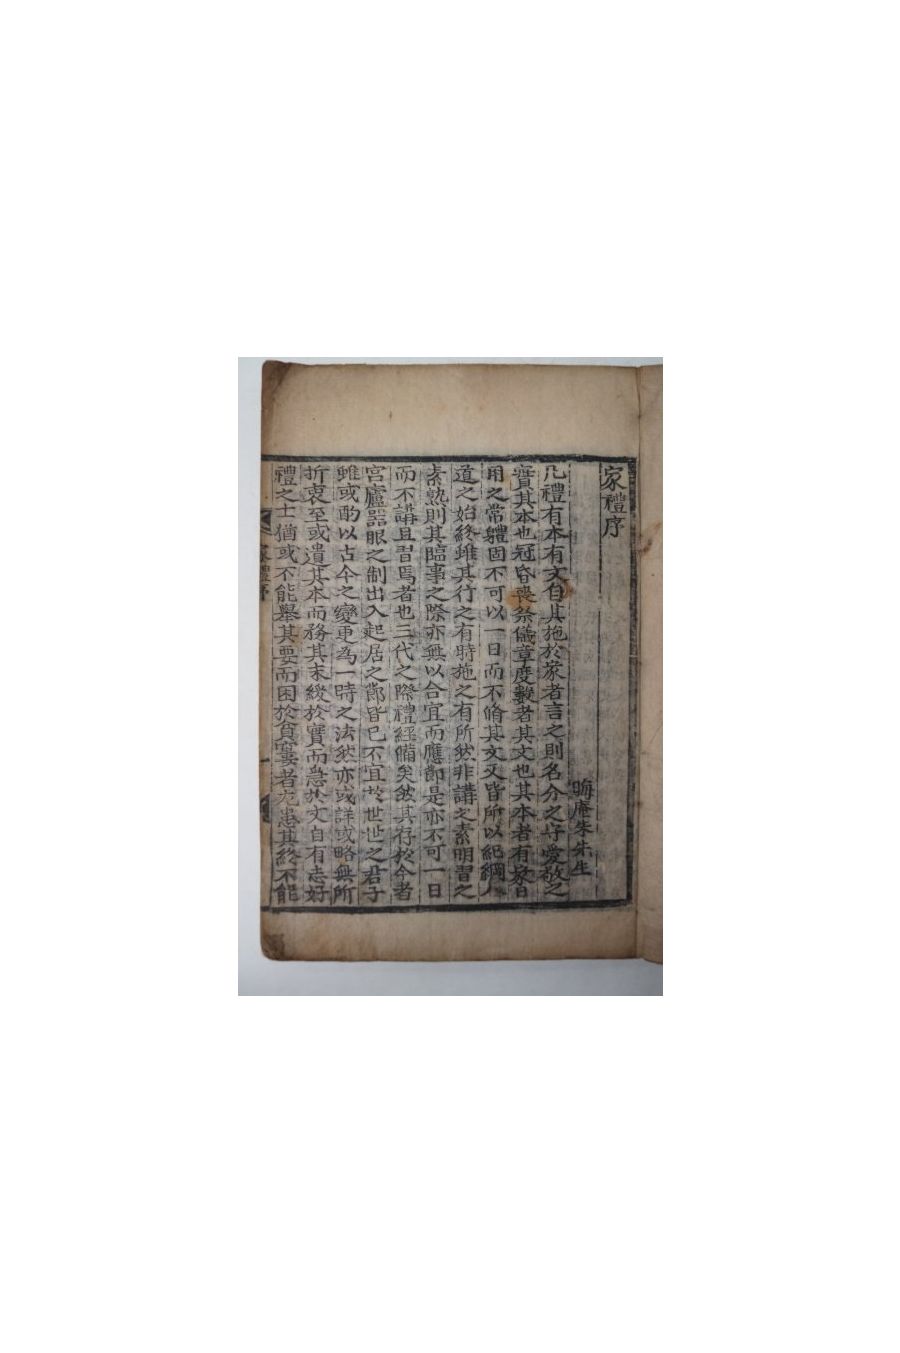 家禮序
晦庵朱先生
凡禮有本有文自其施於家者言之則名分之守愛敬之
實其本也冠昏喪祭儀章度數者其文也其本者有家日
用之常軆固不可以一日而不脩其文又皆所以紀綱人
道之始終雖其行之有時施之有所然非講之素明習之
素熟則其臨事之際亦無以合宜而應節是亦不可一日
而不講且習焉者也三代之際禮經備矣然其存於今者
宮廬器服之制出入起居之節皆已不宜於世世之君子
雖或酌以古今之變更為一時之法然亦或詳或略無所
折衷至或遺其本而務其末緩於實而急於文自有志好
禮之士猶或不能舉其要而困於貧窶者尤患其終不能
家禮序